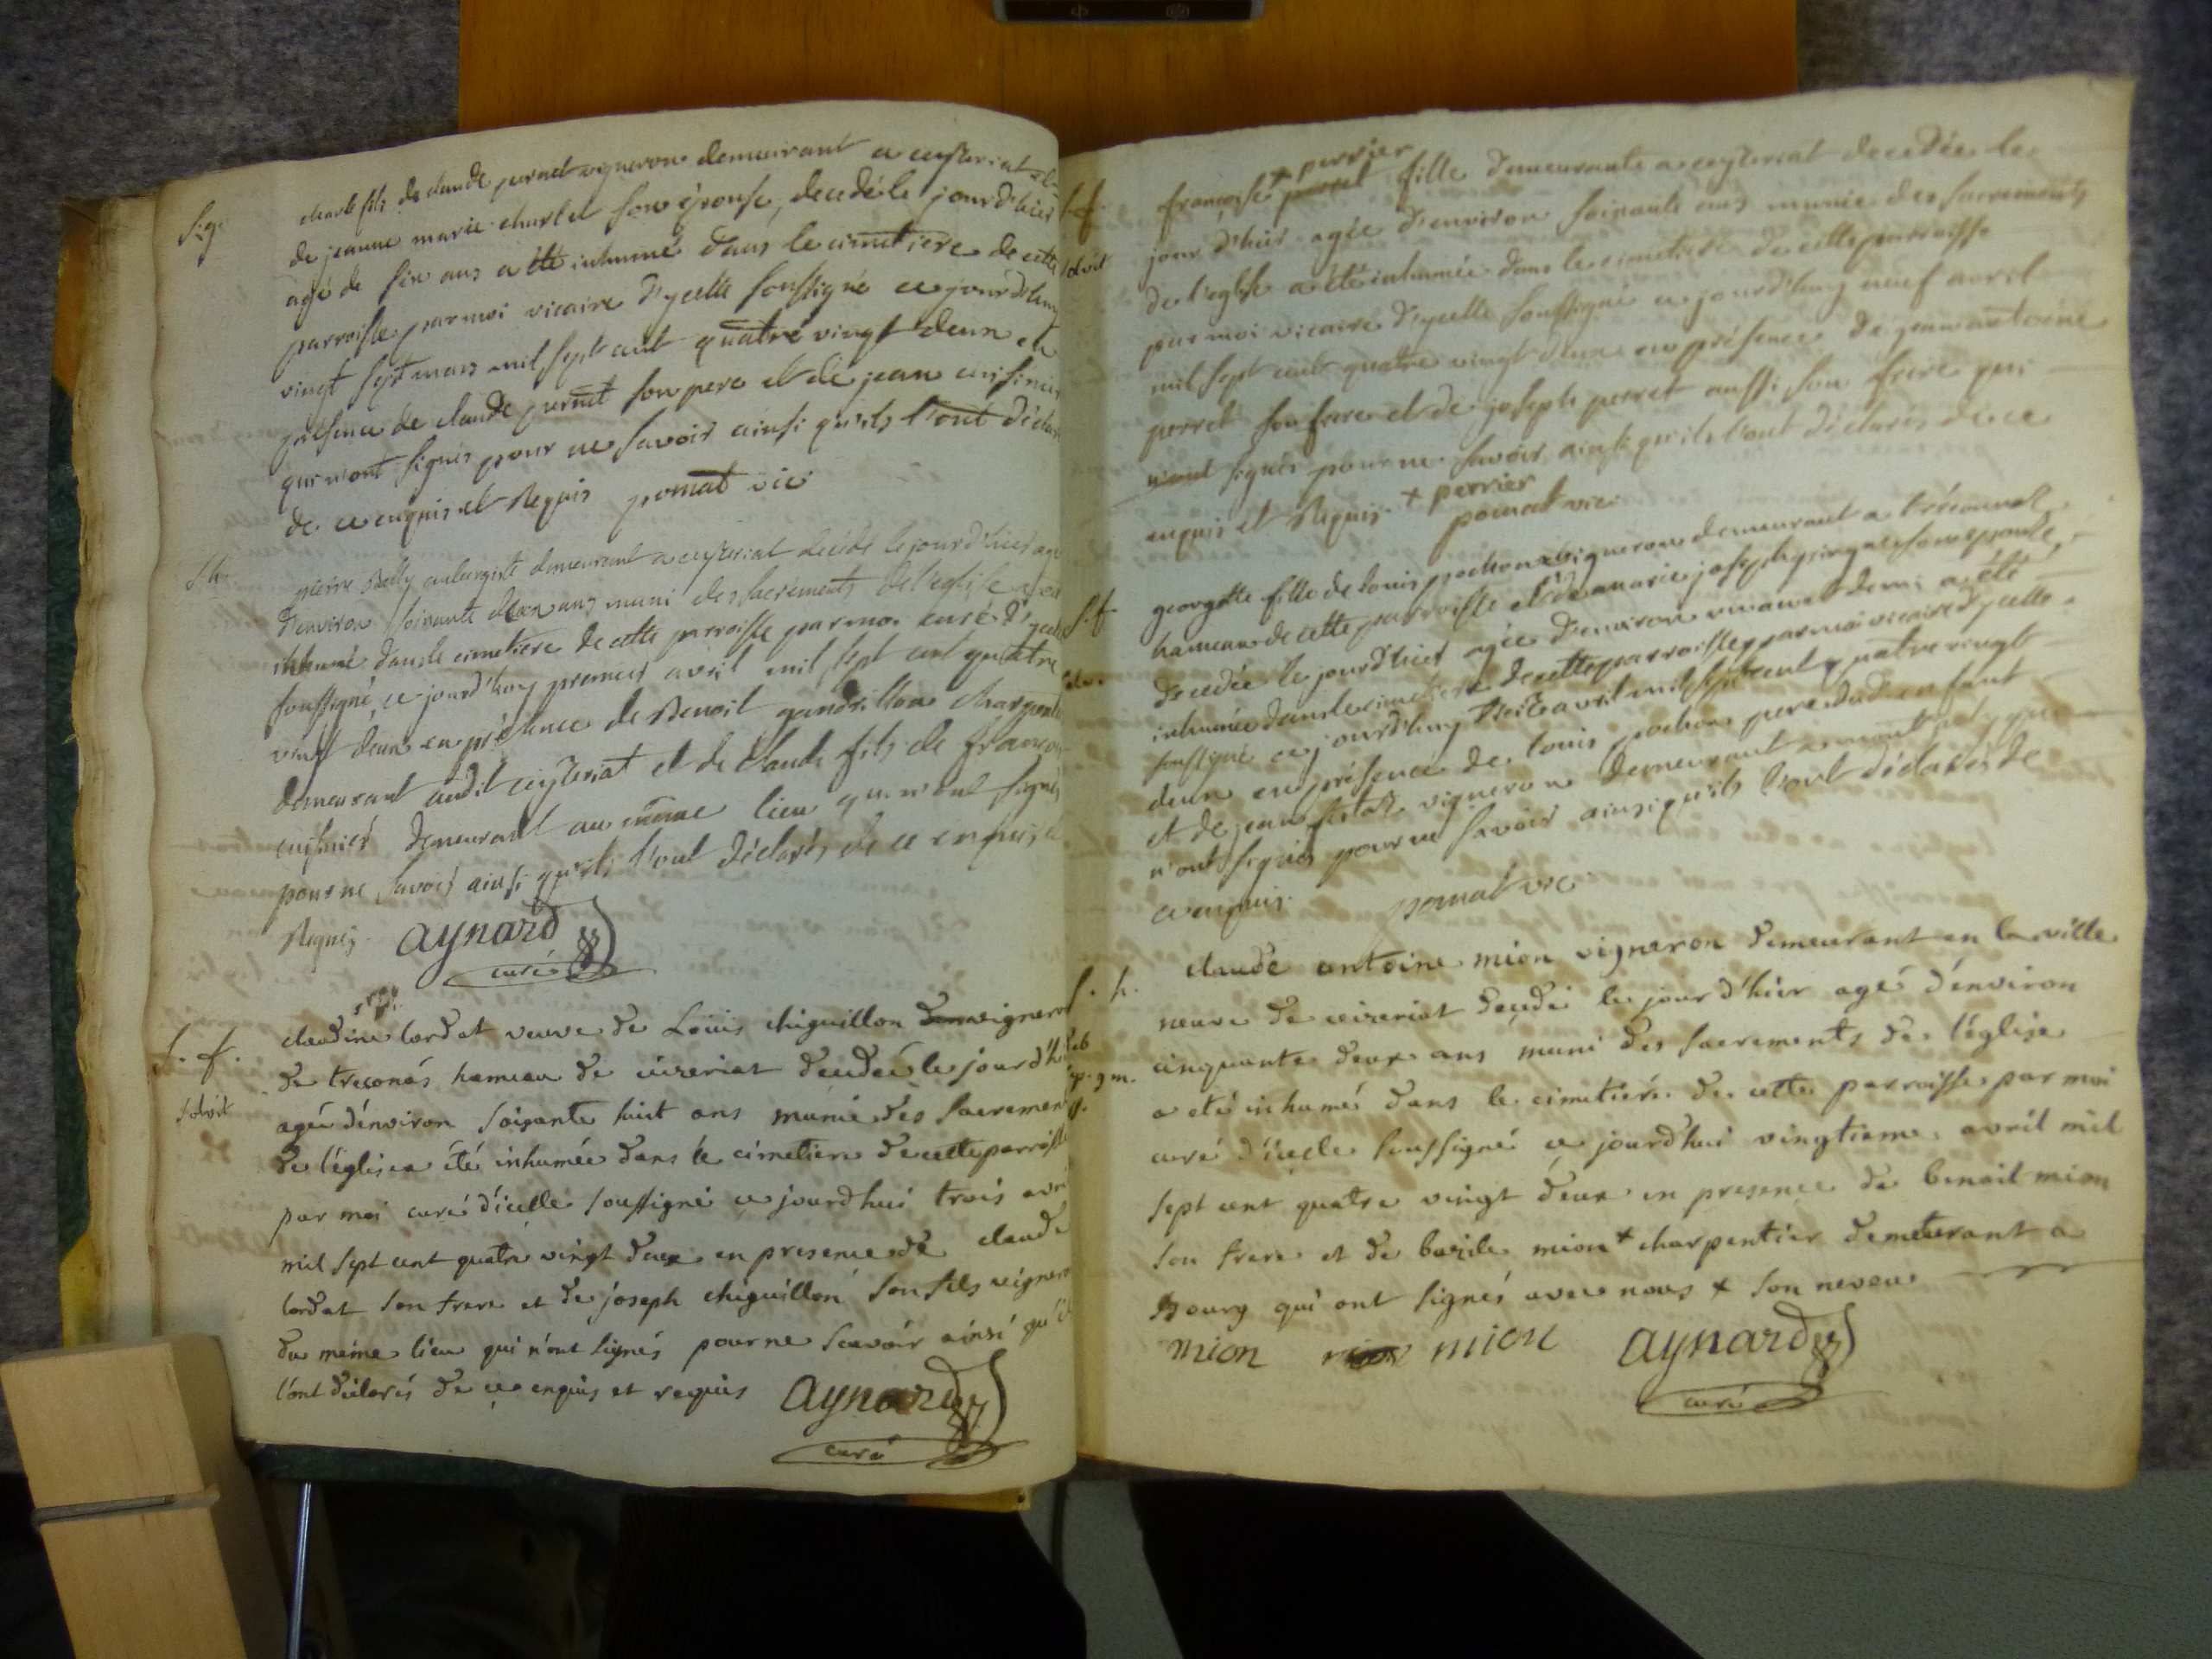 S. g.
claude fils de claude pernet vigneron demeurant a ceyzeriat et
de jeanne marie charlet son épouse, decedé le jour d'hier
agé de six ans a été inhumé dans le cimetiere de cette
parroisse par moi vicaire d'ycelle soussigné ce jourd'huy
vingt sept mars mil sept cent quatre vingt deux en
présence de claude pernet son pere et de jean cuisinier
qui n'ont signés pour ne savoir ainsi qu'ils l'ont déclar
de ce enquis et Requis pomat vic
S. h.
pierre Bally aubergiste demeurant a ceyzeriat décédé le jour d'hier agé
d'environ soixante deux ans muni des sacrements de l'eglise a été
inhumé dans le cimetiere de cette parroisse par moi curé d'ycelle
soussigné, ce jourd'huy premier avril mil sept cent quatre
vingt deux en présence de Benoit gandrillon charpentier
demeurant audit ceyzeriat et de Claude fils de françois
cuisinier demeurant au même lieu qui n'ont signés
pour ne savoir ainsi qu'ils l'ont déclarés de ce enquis et
Requis. aynard
curé
S. f.
claudine lordat veuve de Loüis chiguillon vigneron
de treconás hameau de ceizeriat decedée le jour d'h
solvit
ageé d'énviron soixante huit ans munie des sacremen
de l'église a été inhumée dans le cimetiere de cette parroisse
par moi curé d'icelle soussigné ce jourd'hui trois avri
mil sept cent quatre vingt deux en presence de claude
lordat son frere et de joseph chiguillon son fils vigneron
du méme lieu qui n'ont signés pour ne scavoir ainsi qu'il
l'ont déclarés de ce enquis et requis aynard
curé
S. f.
+ perrier
françoise perret fille demeurante a ceyzeriat decedée le
jour d'hier agée d'environ soixante ans munie des sacrements
solvit
de l'eglise a été inhumée dans le cimetiere de cette parroisse
par moi vicaire d'ycelle soussigné ce jourd'huy neuf avril
mil sept cent quatre vingt deux en présence de jean antoine
perret son frere et de joseph perret aussi son frere qui
n'ont signés pour ne savoir ainsi qu'ils l'ont déclarés de ce
enquis et Requis. + perrier
pomat vic.
S. f.
georgette fille de louis pochon vigneron demeurant a tréconnas
hameau de cette parroisse et de marie josephe pirgue son epouse,
decedée le jour d'hier agée d'environ un an et demi a été
inhumée dans le cimetiere de cette parroisse par moi vicaire d'ycelle
soussigné ce jourd'huy treize avril mil sept cent quatre vingt
deux en présence de louis pochon pere dud. enfant
et de jean vigneron demeurant a mont
n'ont signés pour ne savoir ainsi qu'ils l'ont déclarés de
ce enquis. pomat vic
S. h.
claude antoine mion vigneron demeurant en la ville
neuve de ceizeriat decedé le jour d'hier agé d'énviron
cinquante deux ans muni des sacrements de l'église
a eté inhumé dans le cimetiére de cette parroisse par moi
curé d'icelle soussigné ce jourd'hui vingtieme avril mil
sept cent quatre vingt deux en presence de benoit mion
son frere et de bazile mion + charpentier demeurant a
Bourg qui ont signés avec nous + son neveu
mion mion aynard
curé